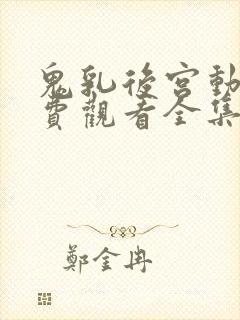 鬼乳後宮動
費觀看全集
鄭金冉